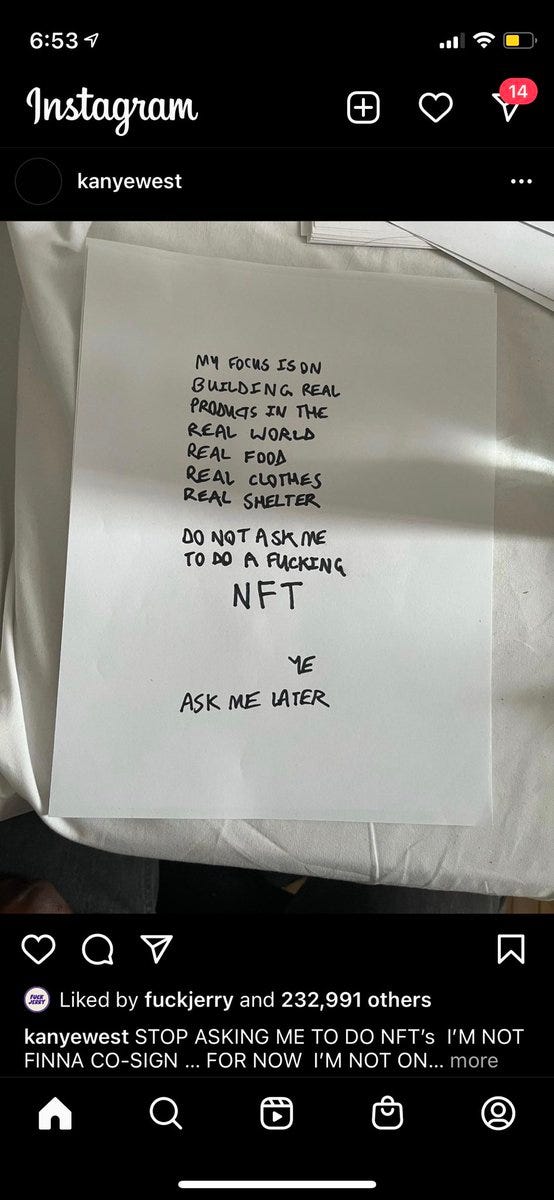 6:53
Instagram
14
kanyewest
MY FOCUS IS ON
BUILDING REAL
PRODUCTS IN THE
REAL WORLD
REAL FOOD
REAL CLOTHES
REAL SHELTER
DO NOT ASK ME
TO DO A FUCKING
NFT
YE
ASK ME LATER
FUCK
JERRY
Liked by fuckjerry and 232,991 others
kanyewest STOP ASKING ME TO DO NFT’s I’M NOT
FINNA CO-SIGN ... FOR NOW I’M NOT ON... more